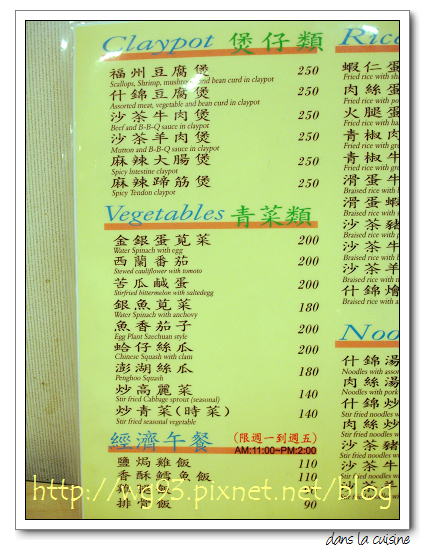 Claypot 煲仔類
福州豆腐煲 250
Scallops, Shrimp, mushroom and bean curd in claypot
什錦豆腐煲 250
Assorted meat, vegetable and bean curd in claypot
沙茶牛肉煲 250
Beef and B-B-Q sauce in claypot
沙茶羊肉煲 250
Mutton and B-B-Q sauce in claypot
麻辣大腸煲 250
Spicy Intestine claypot
麻辣蹄筋煲 250
Spicy Tendon claypot
Vegetables 青菜類
金銀蛋莧菜 200
Water Spinach with egg
西蘭番茄 200
Stewed cauliflower with tomato
苦瓜鹹蛋 200
Stirfried bittermelon with saltedegg
銀魚莧菜 180
Water Spinach with anchovy
魚香茄子 200
Egg Plant Szechuan style
蛤仔絲瓜 200
Chinese Squash with clam
澎湖絲瓜 180
Penghoo Squash
炒高麗菜 140
Stir fried Cabbage sprout (seasonal)
炒青菜(時菜) 140
Stir fried seasonal vegetable
經濟午餐 (限週一到週五)
AM:11:00~PM:2:00
鹽焗雞飯 110
香酥鱈魚飯 110
排骨飯 90
Rice
蝦仁蛋
Fried rice with
肉絲蛋
Fried rice with
火腿蛋
Fried rice with
青椒肉
Fried rice with
青椒牛
Fried rice with
滑蛋牛
Braised rice with
滑蛋蝦
Braised rice with
沙茶豬
Braised rice with
沙茶牛
Braised rice with
沙茶羊
Braised rice with
什錦燴
Braised rice with
Noo
什錦湯
Noodles with
肉絲湯
Noodles with pork
什錦炒
Stir fried noodles
肉絲炒
Stir fried noodles
沙茶豬
Stir fried noodles
沙茶牛
Stir fried noodles
沙茶羊
http://wg93.pixnet.net/blog
dans la cuisine